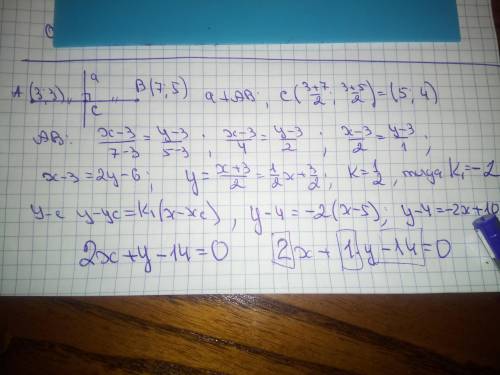 a
A (3;3) B(7;5) a⊥AB; C(3+7/2; 3+5/2)=(5; 4)
C
AB: x-3/7-3=y-3/5-3; x-3/4=y-3/2; x-3/2=y-3/1;
x-3=2y-6; y=x+3/2=1/2x+3/2; K=1/2, тогда K₁=-2
y-yc=K₁(x-xc), y-4=-2(x-5); y-4=-2x+10
2x+y-14=0 2x+1·y-14=0